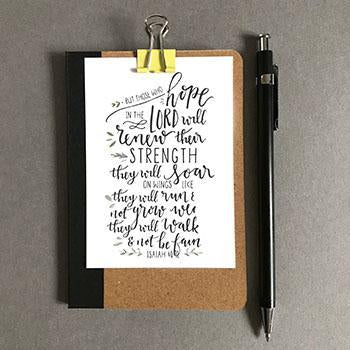 BUT THOSE WHO hope
IN THE LORD will
renew their
STRENGTH
they will soar
ON WINGS LIKE
they will run &
not grow we
they will walk
& not be fain
ISAIAH